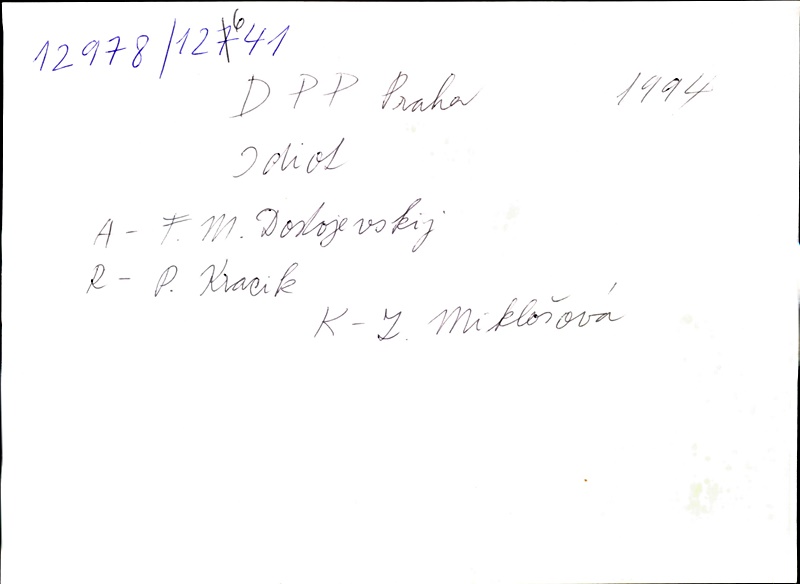 12978/12641
DPP Praha 1994
Idiot
A - F. M. Dostojevskij
R - P. Kracik
K - Z. Miklošová